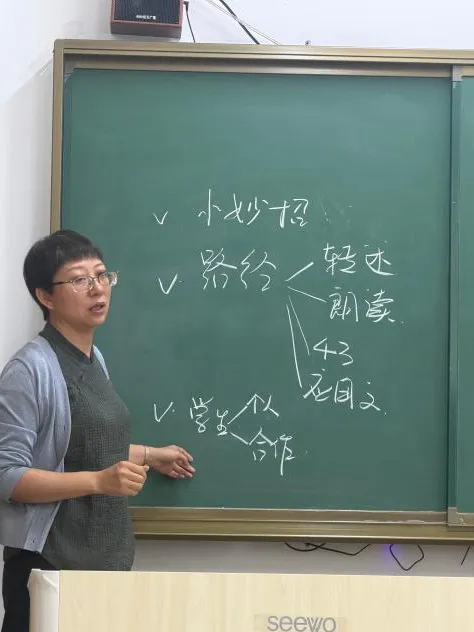 ✓ 小妙招
✓ 路径
转述
朗读
43
✓ 学生
个人
合作
seewo